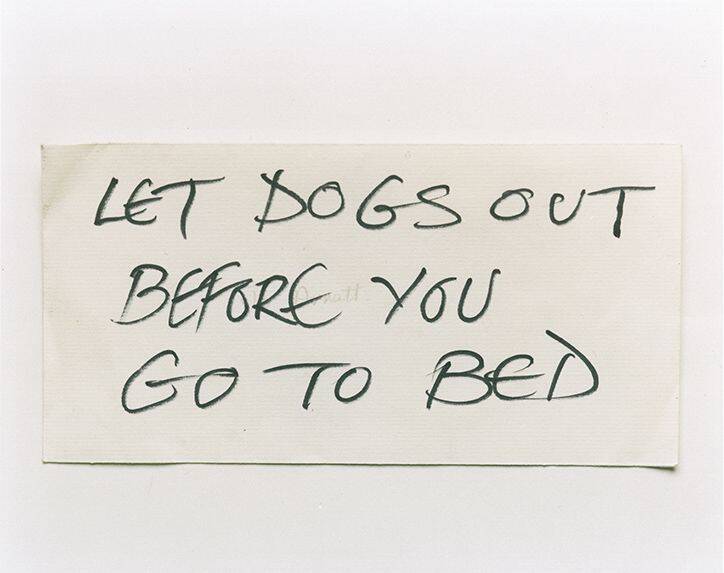 LET DOGS OUT
BEFORE YOU
GO TO BED